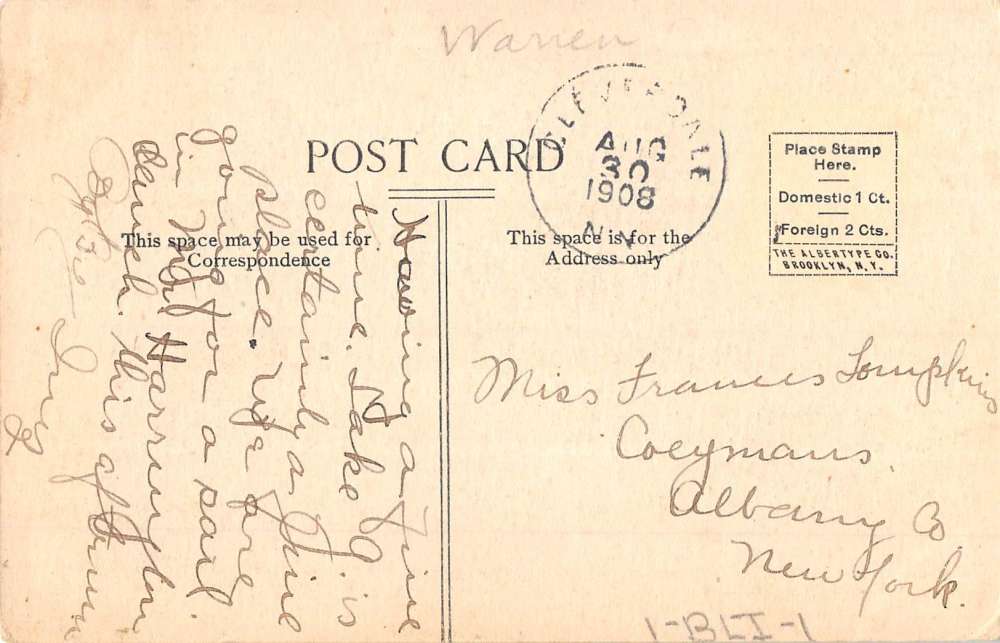 Warren
CLEVERDALE
AUG
30
1908
N.Y.
POST CARD
This space may be used for
Correspondence
This space is for the
Address only
Place Stamp
Here.
Domestic 1 Ct.
Foreign 2 Cts.
THE ALBERTYPE CO.
BROOKLYN, N. Y.
Having a fine
time. Lake G. is
certainly a fine
place. We are
going for a sail
in Harrington
launch this aft
Miss Frances Tompkins
Coeymans.
Albany Co
New York.
1-BLI-1